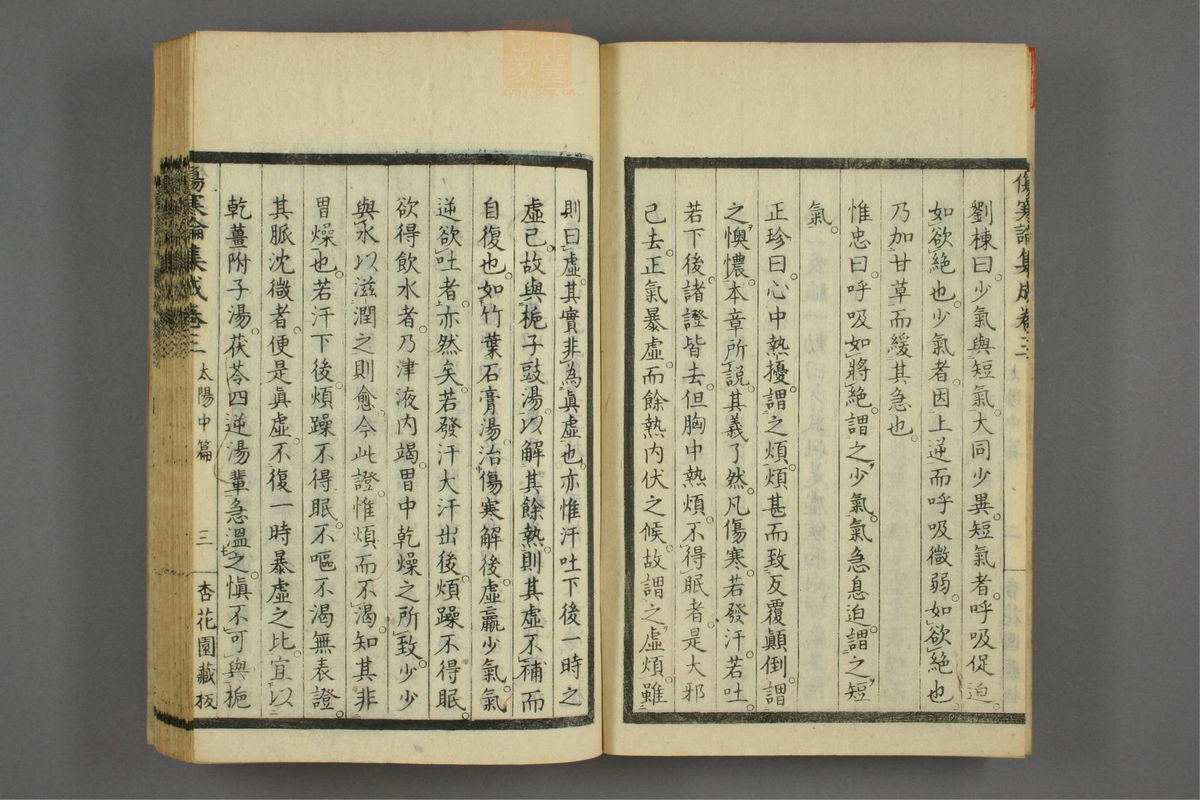 傷寒論集成卷三
劉棟曰。少氣與短氣。大同少異。短氣者。呼吸促迫。
如欲絕也。少氣者。因上逆而呼吸微弱。如欲絕也。
乃加甘草而緩其急也。
惟忠曰。呼吸如將絕。謂之少氣。氣急息迫。謂之短
氣。
正珍曰。心中熱擾。謂之煩。煩甚而致反覆顛倒。謂
之懊憹。本章所說。其義了然。凡傷寒。若發汗。若吐。
若下後。諸證皆去。但胸中熱煩。不得眠者。是大邪
已去。正氣暴虛。而餘熱內伏之候。故謂之虛煩。雖
則曰虛。其實非為眞虛也。亦惟汗吐下後。一時之
虛已。故與梔子豉湯。以解其餘熱。則其虛不補而
自復也。如竹葉石膏湯。治傷寒解後。虛羸少氣。氣
逆欲吐者。亦然矣。若發汗大汗出後。煩躁不得眠。
欲得飲水者。乃津液內竭。胃中乾燥之所致。少少
與水以滋潤之則愈。今此證。惟煩而不渴。知其非
胃燥也。若汗下後。煩躁不得眠。不嘔不渴。無表證。
其脈沈微者。便是眞虛。不復一時暴虛之比。宜以
乾薑附子湯。茯苓四逆湯輩。急溫之。愼不可與梔
傷寒論集成卷三
太陽中篇
三
杏花園藏板